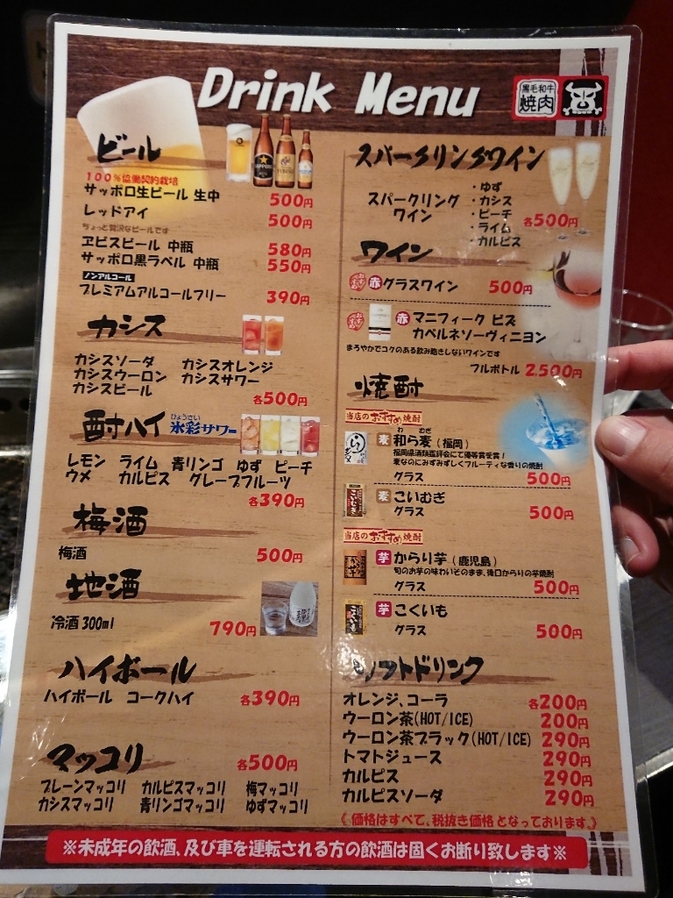 Drink Menu
黒毛和牛
焼肉
ビール
100%協働契約栽培
サッポロ生ビール 生中 500円
レッドアイ 500円
ちょっと贅沢なビールです
ヱビスビール 中瓶 580円
サッポロ黒ラベル 中瓶 550円
ノンアルコール
プレミアムアルコールフリー 390円
カシス
カシスソーダ カシスオレンジ
カシスウーロン カシスサワー
カシスビール
各500円
酎ハイ 氷彩サワー
ひょうさい
レモン ライム 青リンゴ ゆず ピーチ
ウメ カルピス グレープフルーツ
各390円
梅酒
梅酒 500円
地酒
冷酒300ml 790円
ハイボール
ハイボール コークハイ 各390円
マッコリ 各500円
プレーンマッコリ カルピスマッコリ 梅マッコリ
カシスマッコリ 青リンゴマッコリ ゆずマッコリ
スパークリングワイン
スパークリング
ワイン
・ゆず
・カシス
・ピーチ
・ライム
・カルピス
各500円
ワイン
赤 グラスワイン 500円
赤 マニフィーク ビズ
カベルネソーヴィニヨン
まろやかでコクのある飲み飽きしないワインです
フルボトル 2,500円
焼酎
当店のおすすめ焼酎
わ むぎ
麦 和ら麦（福岡）
福岡県酒類鑑評会にて優等賞受賞！
麦なのにみずみずしくフルーティな香りの焼酎
グラス 500円
麦 こいむぎ
グラス 500円
当店のおすすめ焼酎
芋 からり芋（鹿児島）
旬のお芋の味わいそのまま、後口からりの芋焼酎
グラス 500円
芋 こくいも
グラス 500円
ソフトドリンク
オレンジ、コーラ 各200円
ウーロン茶(HOT/ICE) 200円
ウーロン茶ブラック(HOT/ICE) 290円
トマトジュース 290円
カルピス 290円
カルピスソーダ 290円
《 価格はすべて、税抜き価格となっております。》
※未成年の飲酒、及び車を運転される方の飲酒は固くお断り致します※